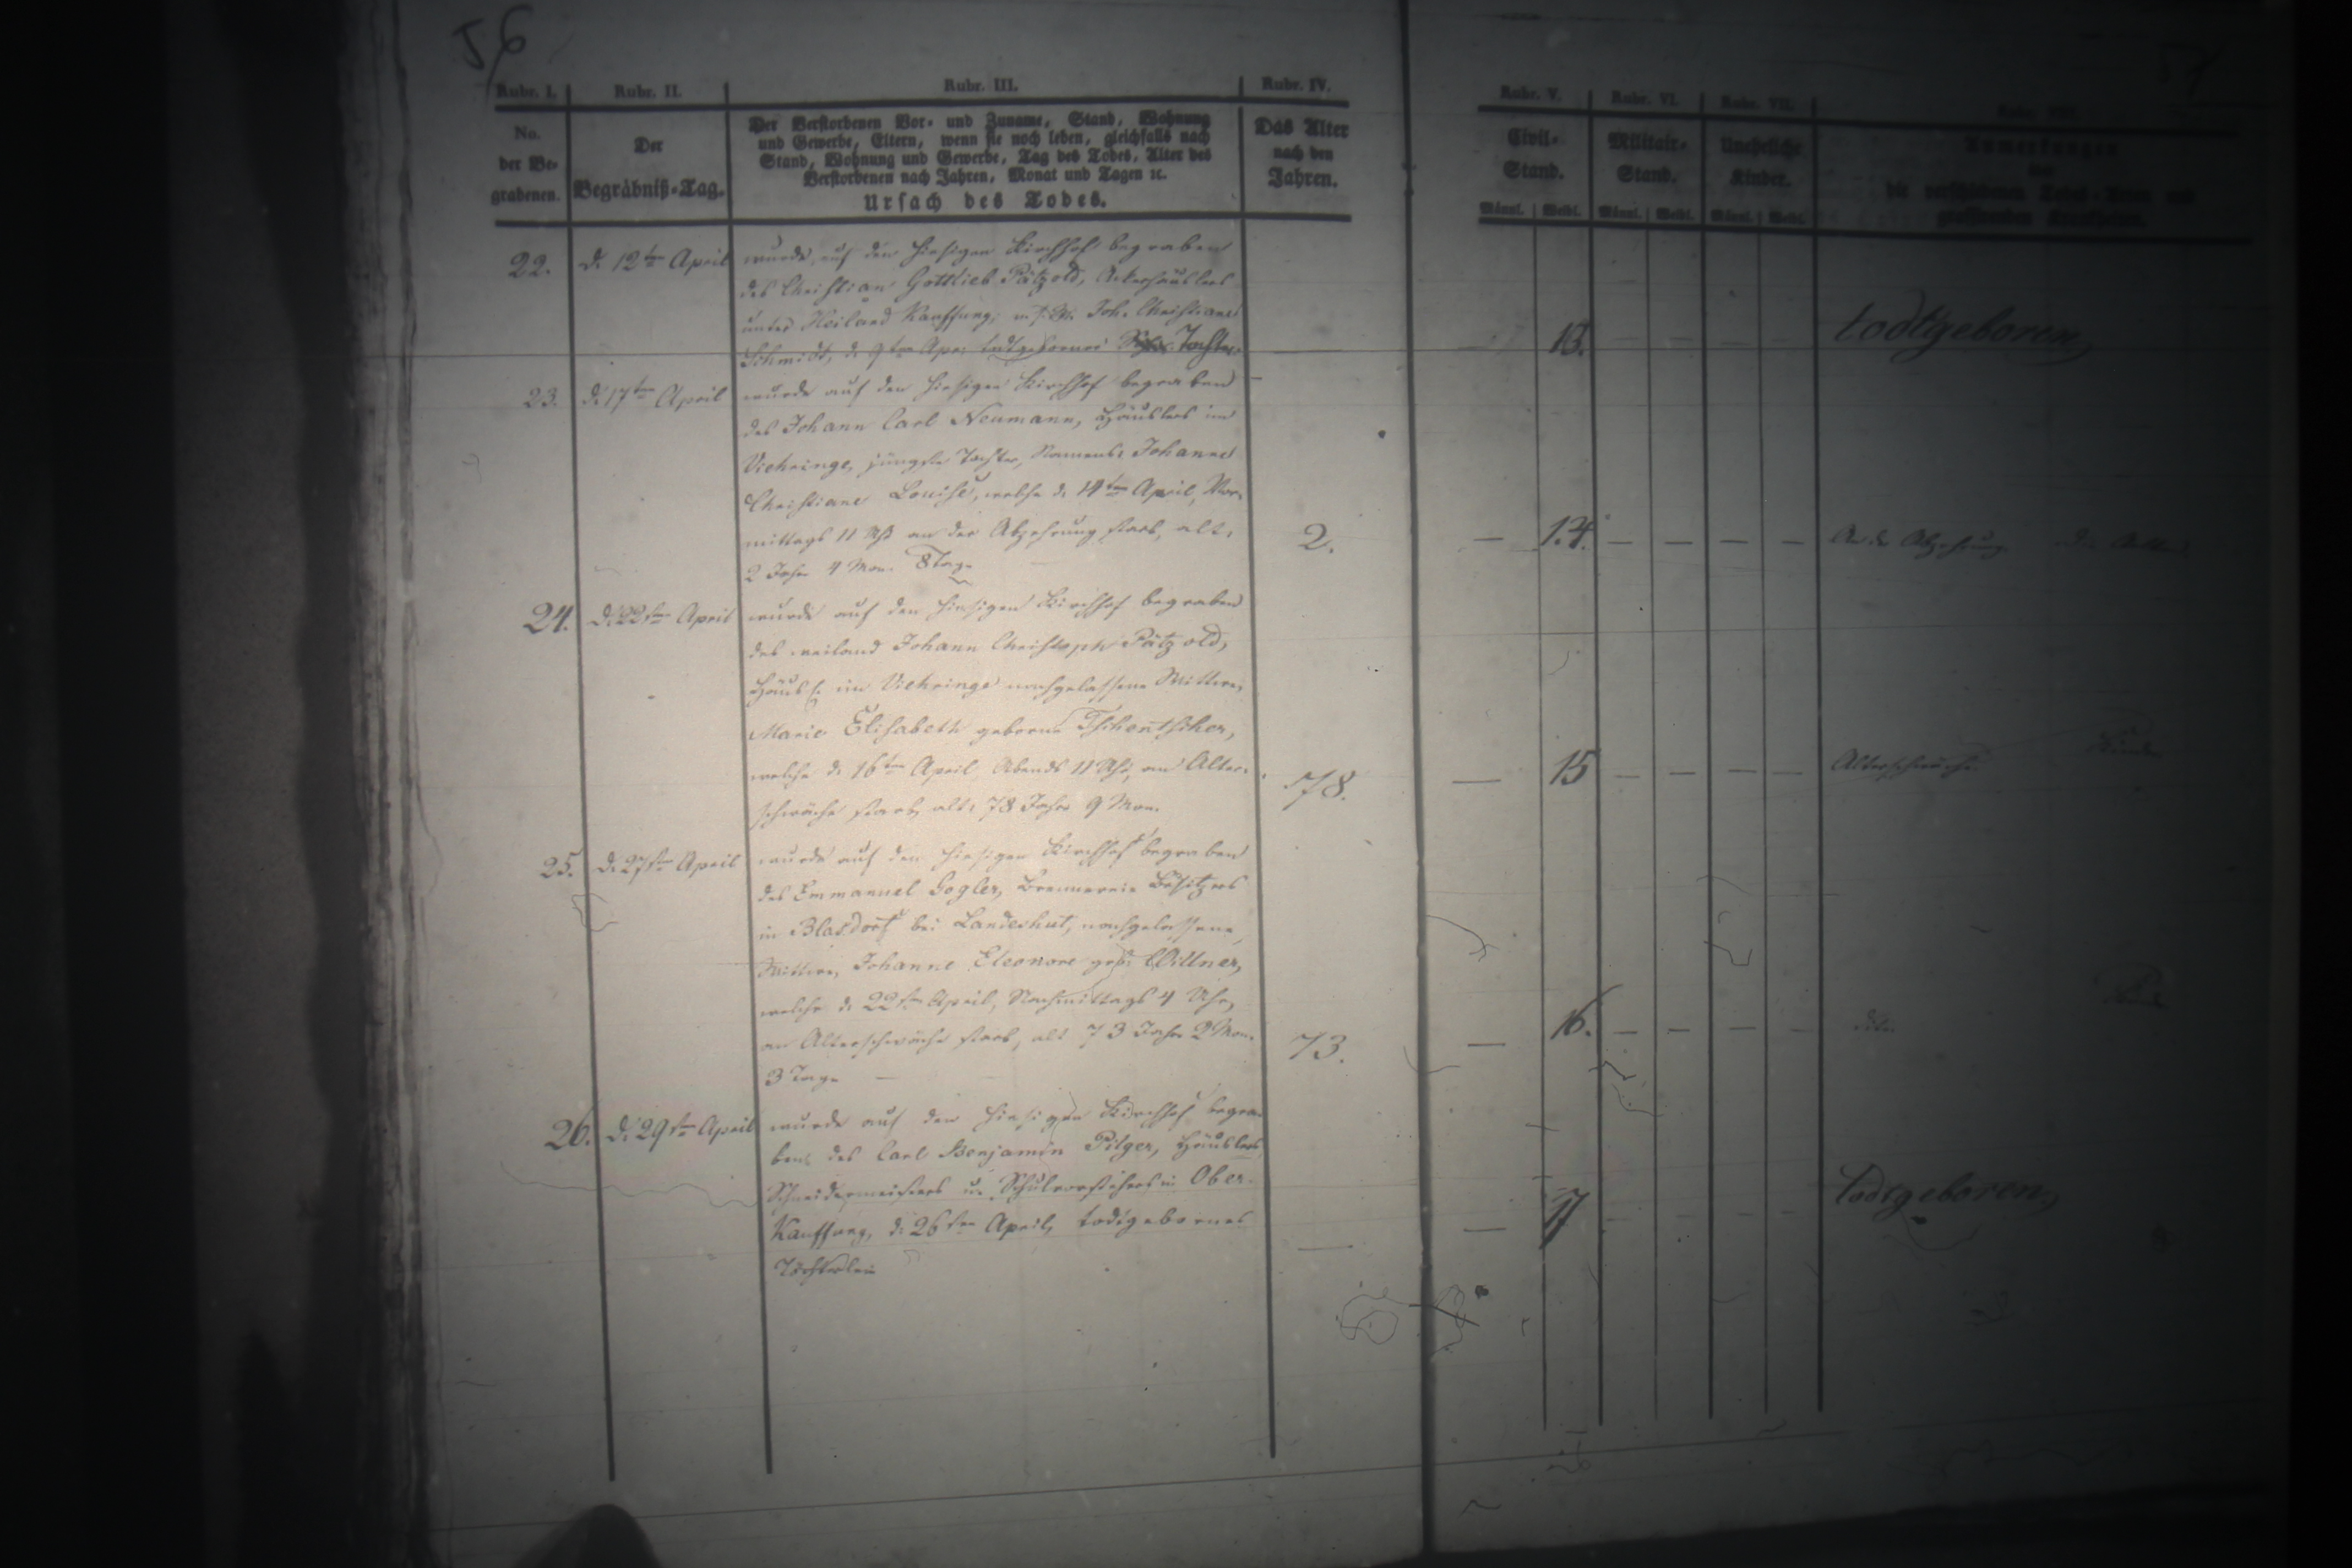 56
Rubr. I.
Rubr. II.
Rubr. III.
Rubr. IV.
Rubr. V.
Rubr. VI.
Rubr. VII.
Rubr. VIII.
No.
der Be-
grabenen.
Der
Begräbniß-Tag.
Der Verstorbenen Vor- und Zuname, Stand, Wohnung
und Gewerbe, Eltern, wenn sie noch leben, gleichfalls nach
Stand, Wohnung und Gewerbe, Tag des Todes, Alter des
Verstorbenen nach Jahren, Monat und Tagen ꝛc.
Ursach des Todes.
Das Alter
nach den
Jahren.
Civil-
Stand.
Männl. Weibl.
Militair-
Stand.
Männl. Weibl.
Uneheliche
Kinder.
Männl. Weibl.
Anmerkungen
die verschiedenen Todes-Arten und
grassirenden Krankheiten.
22. d. 12ten April
wurde auf den hiesigen Kirchhof begraben
des Christian Gottlieb Pätzold, Ackerhäuslers
unter Kauffung, Joh. Christiane
Schmidt, d. 9ten Apr. todtgeborne Tochter.
— 13. — — — — todtgeboren
23. d. 17ten April
wurde auf den hiesigen Kirchhof begraben
des Johann Carl Neumann, Häuslers im
Viehringe, jüngste Tochter, Namens: Johanne
Christiane Louise, welche d. 14ten April, Vor-
mittags 11 Uhr an der Abzehrung starb, alt:
2 Jahr 4 Mon. 8 Tage
2. — 14. — — — — An der Abzehrung
24. d. 22sten April
wurde auf den hiesigen Kirchhof begraben
des weiland Johann Christoph Pätzold,
Häusl. im Viehringe nachgelassene Wittwe,
Marie Elisabeth geborne Tschentscher,
welche d. 16ten April Abends 11 Uhr, an Alter-
schwäche starb, alt: 78 Jahr 9 Mon.
78. — 15 — — — — Alterschwäche
25. d. 27sten April
wurde auf den hiesigen Kirchhof begraben
des Emmanuel Gogler, Brennerei-Besitzers
in Blasdorf bei Landeshut, nachgelassene
Wittwe, Johanne Eleonore geb. Willner,
welche d. 22sten April, Nachmittags 4 Uhr,
an Alterschwäche starb, alt 73 Jahr 2 Mon.
3 Tage —
73. — 16. — — — — dito
26. d. 29sten April
wurde auf den hiesigen Kirchhof begra-
ben des Carl Benjamin Pilger, Häuslers,
Schneidermeisters u. Schulvorstehers in Ober-
Kauffung, d. 26sten April, todtgebornes
Töchterlein
— — 17 — — — — todtgeboren,